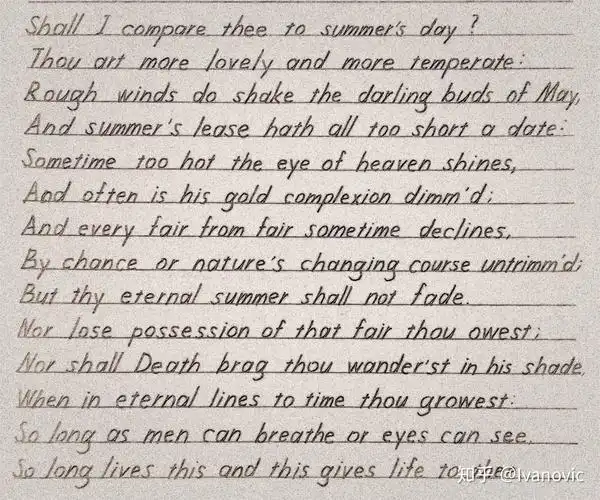 Shall I compare thee to summer's day ?
Thou art more lovely and more temperate:
Rough winds do shake the darling buds of May,
And summer's lease hath all too short a date:
Sometime too hot the eye of heaven shines,
And often is his gold complexion dimm'd;
And every fair from fair sometime declines,
By chance or nature's changing course untrimm'd;
But thy eternal summer shall not fade.
Nor lose possession of that fair thou owest;
Nor shall Death brag thou wander'st in his shade,
When in eternal lines to time thou growest:
So long as men can breathe or eyes can see,
So long lives this and this gives life to thee
知乎 @Ivanovic